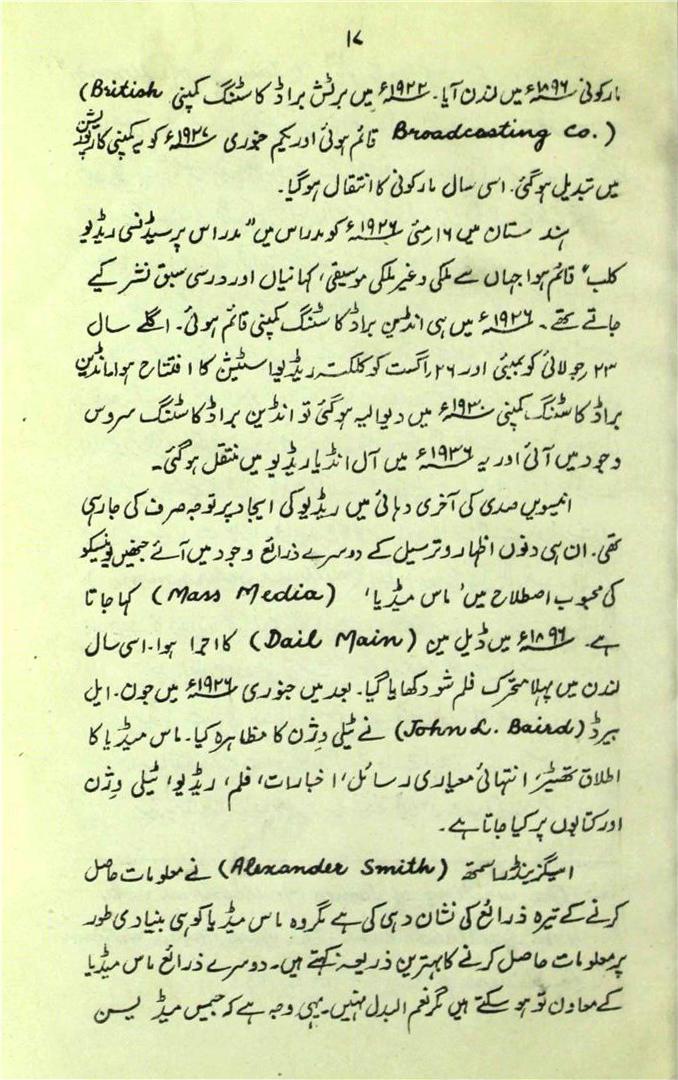 ۱۷
مارکونی ۱۸۹۶ء میں لندن آیا۔ ۱۹۲۲ء میں برٹش براڈ کاسٹنگ کمپنی (British
Broadcasting Co.) قائم ہوئی اور یکم جنوری ۱۹۲۷ء کو یہ کمپنی کارپوریشن
میں تبدیل ہوگئی۔ اسی سال مارکونی کا انتقال ہوگیا۔
ہندستان میں ۱۶ مئی ۱۹۲۶ء کو مدراس میں "مدراس پرسیڈنسی ریڈیو
کلب" قائم ہوا جہاں سے ملکی و غیر ملکی موسیقی، کہانیاں اور درسی سبق نشر کیے
جاتے تھے۔ ۱۹۲۶ء میں ہی انڈین براڈ کاسٹنگ کمپنی قائم ہوئی۔ اگلے سال
۲۳ جولائی کو بمبئی اور ۲۶ اگست کو کلکتہ ریڈیو اسٹیشن کا افتتاح ہوا۔ انڈین
براڈ کاسٹنگ کمپنی ۱۹۳۰ء میں دیوالیہ ہوگئی تو انڈین براڈ کاسٹنگ سروس
وجود میں آئی اور یہ ۱۹۳۶ء میں آل انڈیا ریڈیو میں منتقل ہوگئی۔
انیسویں صدی کی آخری دہائی میں ریڈیو کی ایجاد پر توجہ صرف کی جارہی
تھی۔ ان ہی دنوں اظہار و ترسیل کے دوسرے ذرائع وجود میں آئے جنھیں یونیسکو
کی محبوب اصطلاح میں 'ماس میڈیا' (Mass Media) کہا جاتا
ہے۔ ۱۸۹۶ء میں ڈیل مین (Dail Main) کا اجرا ہوا۔ اسی سال
لندن میں پہلا متحرک فلم شو دکھایا گیا۔ بعد میں جنوری ۱۹۲۶ء میں جون۔ ایل
بیرڈ (John L. Baird) نے ٹیلی وژن کا مظاہرہ کیا۔ ماس میڈیا کا
اطلاق تھیٹر، انتہائی معیاری رسائل، اخبارات، فلم، ریڈیو، ٹیلی وژن
اور کتابوں پر کیا جاتا ہے۔
الیگزینڈر اسمتھ (Alexander Smith) نے معلومات حاصل
کرنے کے تیرہ ذرائع کی نشان دہی کی ہے مگر وہ ماس میڈیا کو ہی بنیادی طور
پر معلومات حاصل کرنے کا بہترین ذریعہ کہتے ہیں۔ دوسرے ذرائع ماس میڈیا
کے معاون تو ہو سکتے ہیں مگر نعم البدل نہیں۔ یہی وجہ ہے کہ جیمس میڈیسن